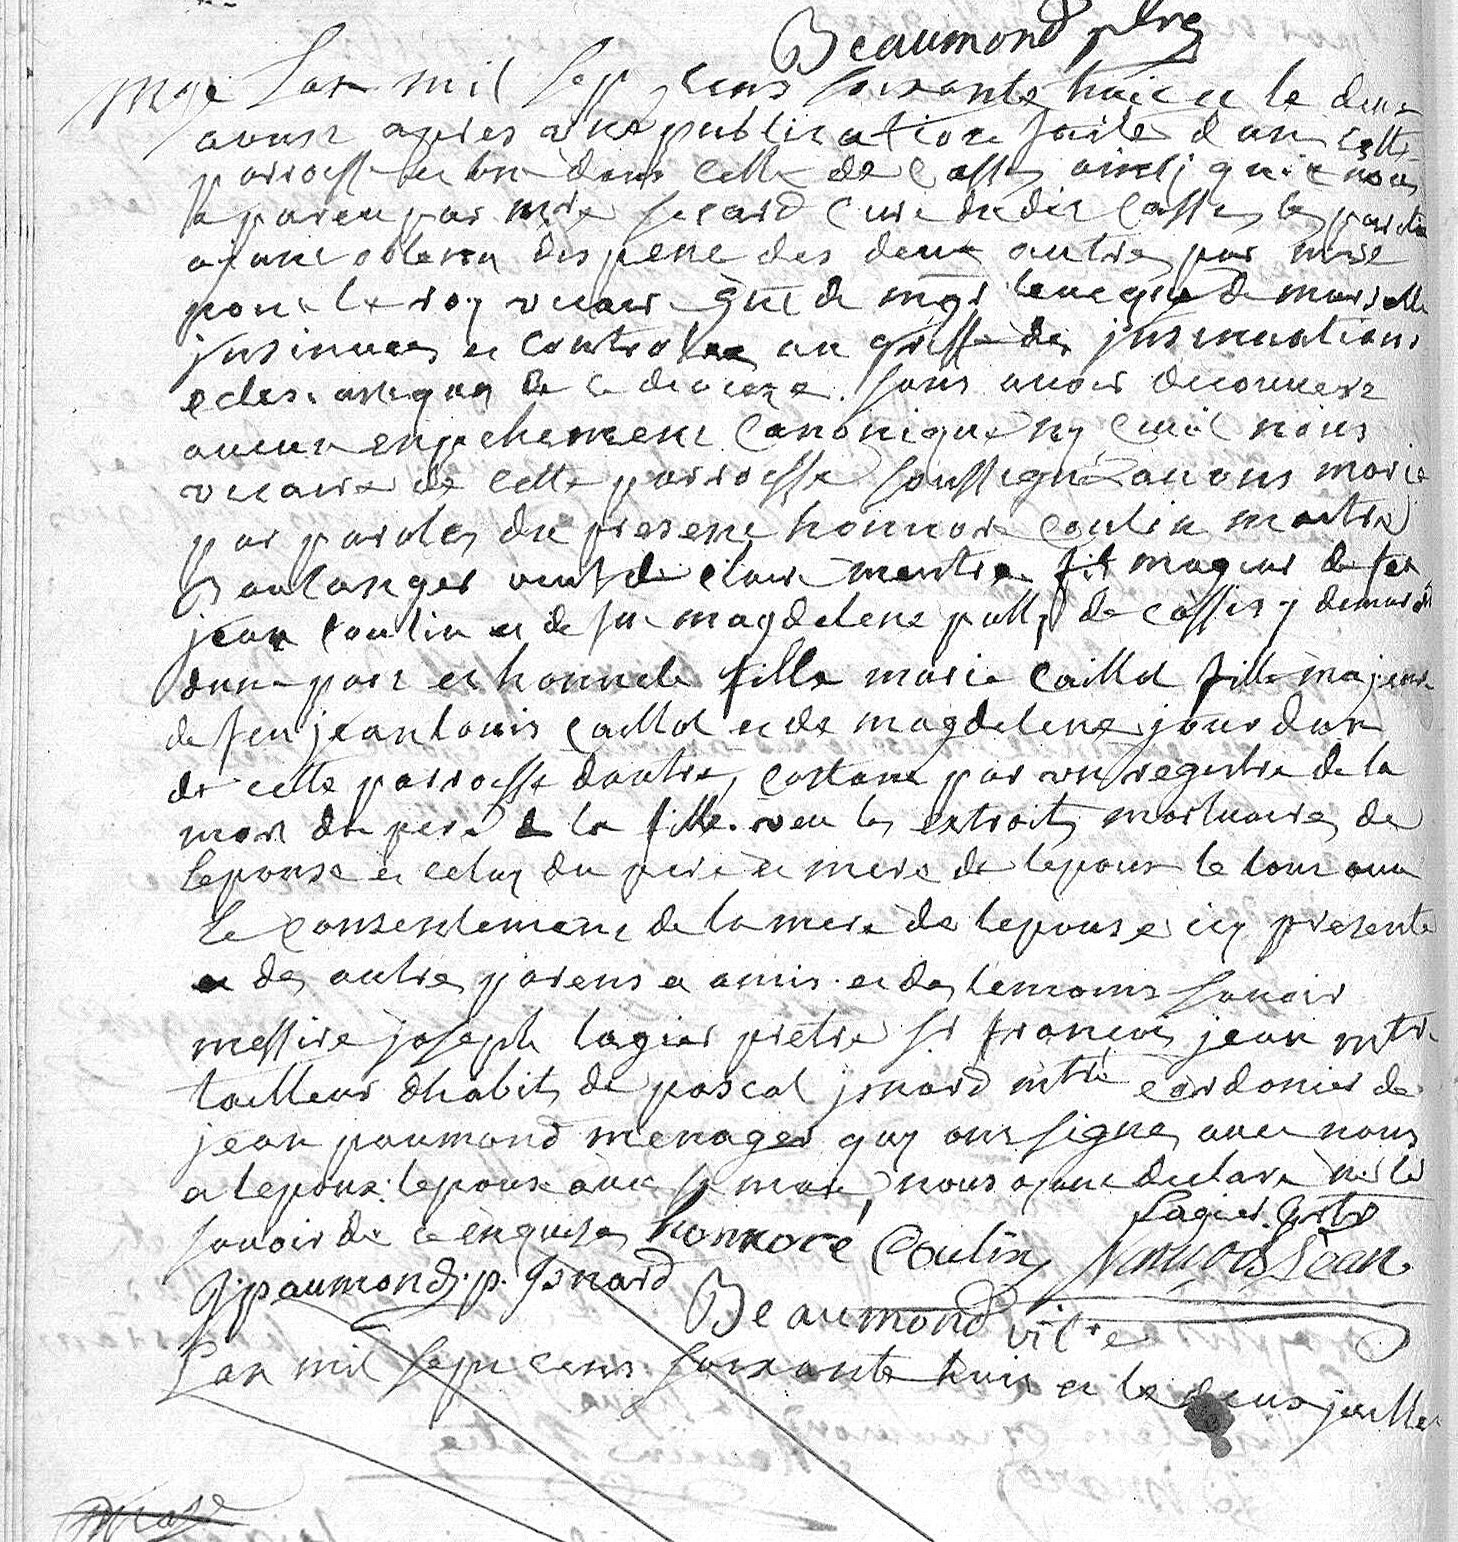 Beaumond ptre
mge Lan mil sept cens soixante huic et le deux
aoust apres une publication faite dans cette
parroisse et une dans celle de Cassis ainsj quil nous
a pareu par mre sicard cure dudit Cassis les parties
ajant obtenu dispene des deux autres par mre
pour le roy vicaire gnl de mgr leveque de marseille
jnsinuees et controlee au greffe des jnsinuations
eclesiastiques de ce dioceze. sans avoir decouvert
aucun enpechement Canonique ny civil nous
vicaire de cette parroisse soussigné avons marie
par paroles du present honnore Coulin maitre
Boulanger veuf de claire fils mageur de feu
jean Coulin et de fue magdelene de Cassis y demurant
dune part et honnete fille marie Caillol fille majeure
de feu jean louis Caillol et de magdelene jourdan
de cette parroisse dautre, Costant par un registre de la
mort du pere de la fille. veu les extraits mortuaires de
lepouse et celuy du pere et mere de lepoux le tout avec
le Consentement de la mere de lepouse icy presente
et des autres parens et amis et des temoins savoir
messire joseph lagier pretre sr francois jean mtre
tailleur dhabits de pascal jsnard mtre cordonier de
jean paumond menager quy ont signes avec nous
et lepoux. lepouse avec sa mere, nous ajant declare ne le
savoir de ce enquises honnoré Coulin Lagier ptre
francois Jean
J. paumond. p. Jsnard Beaumond vicre
Lan mil sept cens soixante huit et le deux juillet